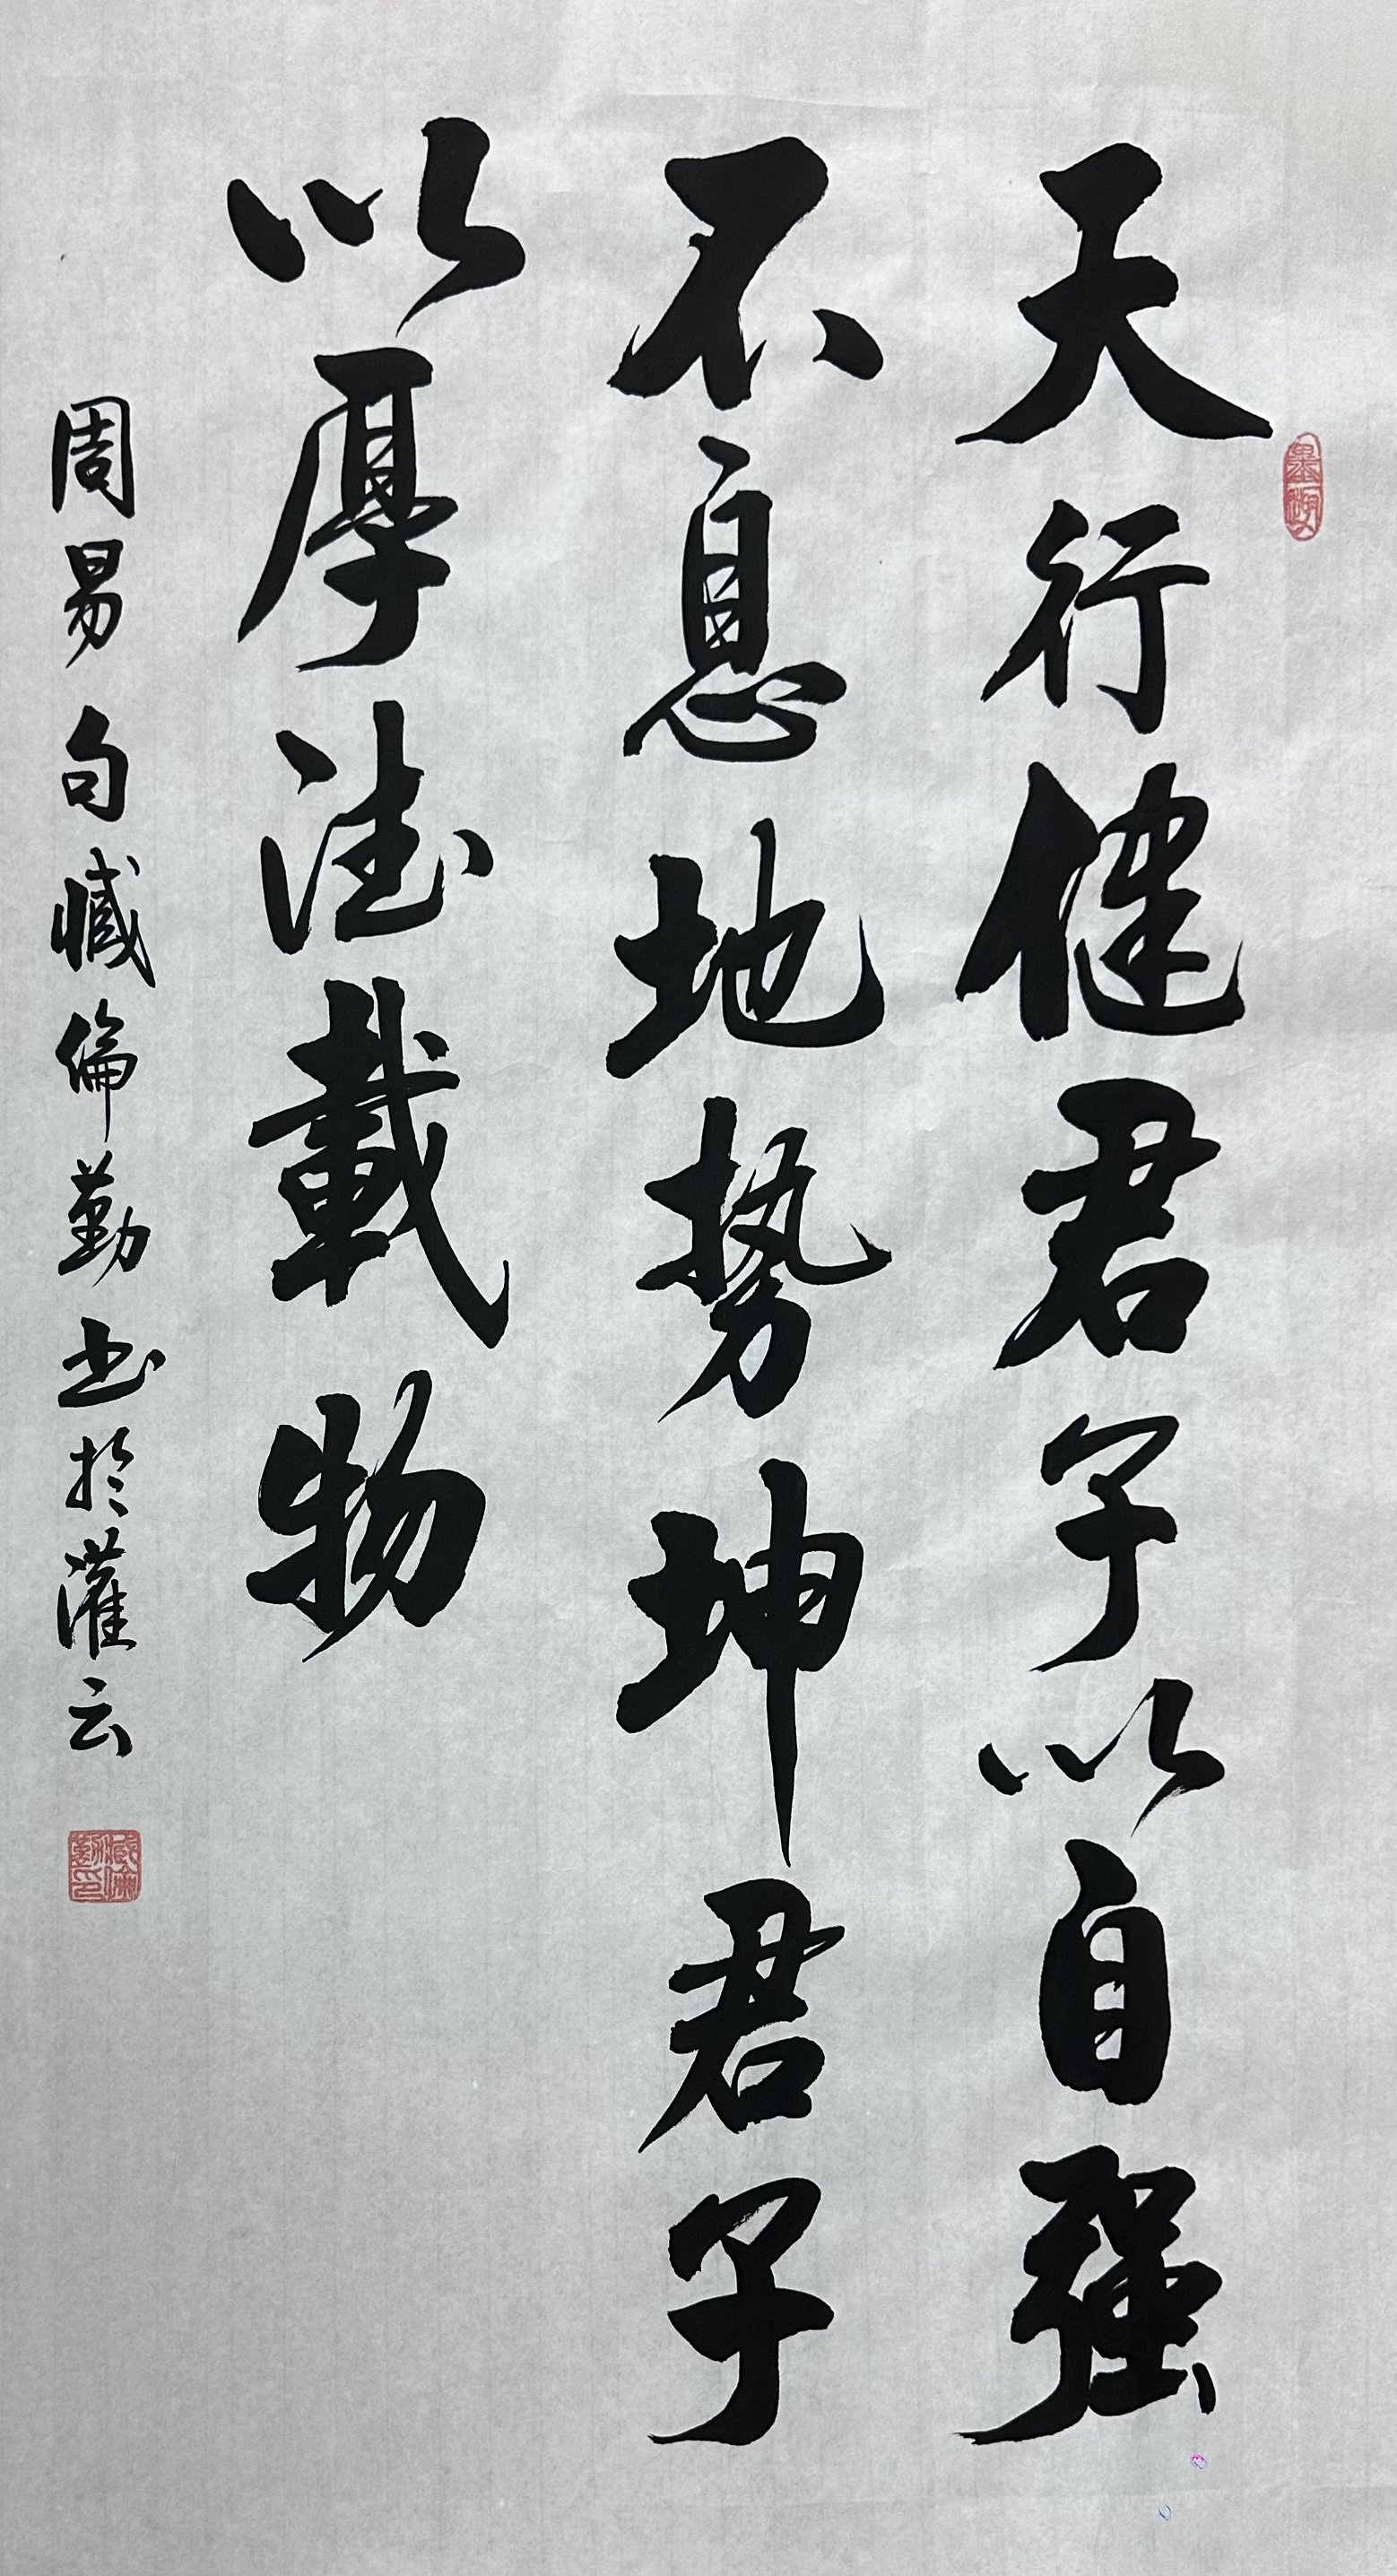 天行健君子以自强
不息地势坤君子
以厚德載物
周易句臧倫勤书於灌云